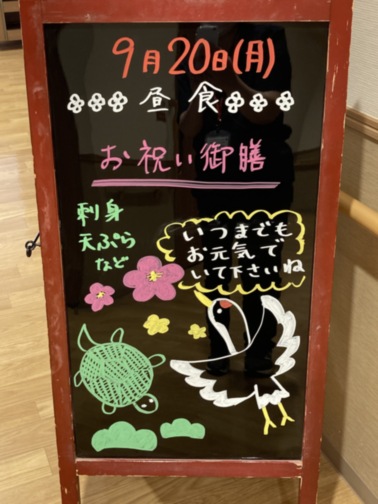 9月20日(月)
昼食
お祝い御膳
刺身
天ぷら
など
いつまでも
お元気で
いて下さいね